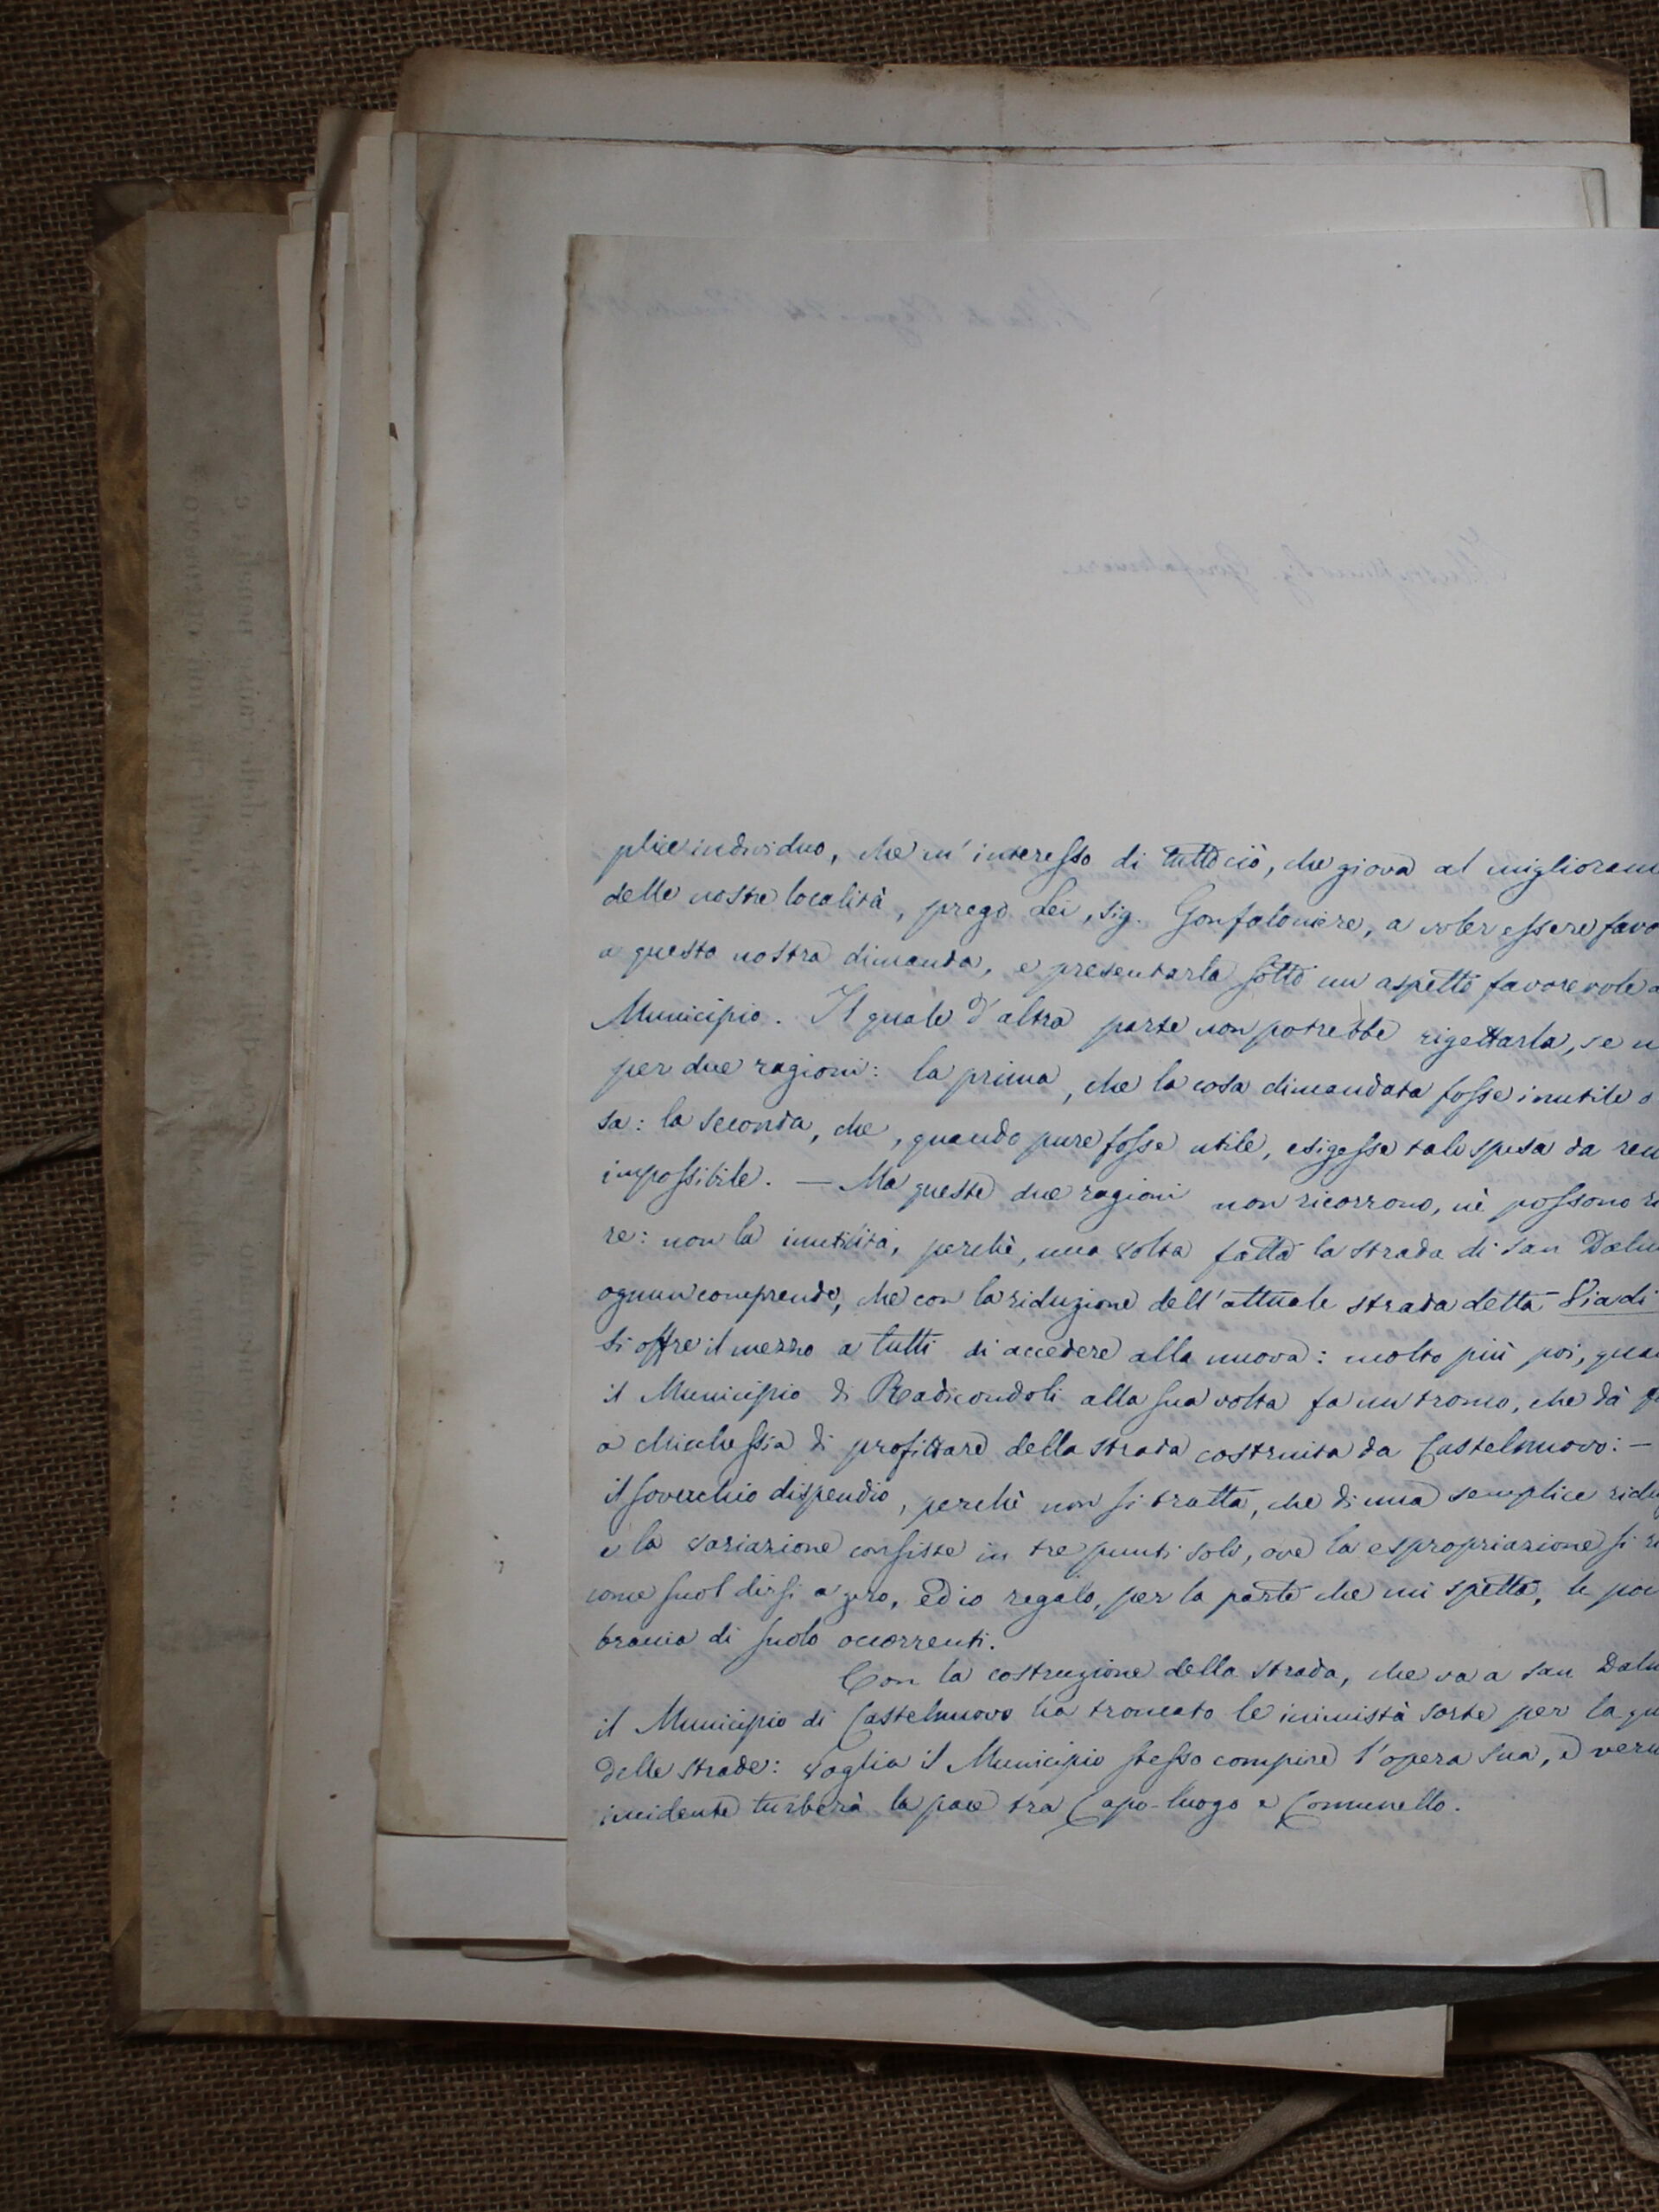 plice individuo, che m'interesso di tutto ciò, che giova al miglioram
delle nostre località, prego Lei, sig. Gonfaloniere, a voler essere favo
a questa nostra dimanda, e presentarla sotto un aspetto favorevole a
Municipio. Il quale d'altra parte non potrebbe rigettarla, se n
per due ragioni: la prima, che la cosa dimandata fosse inutile o
sa: la seconda, che, quando pure fosse utile, esigesse tale spesa da ren
impossibile. — Ma queste due ragioni non ricorrono, nè possono ri
re: non la inutilità, perchè, una volta fatta la strada di San Dalm
ognun comprende, che con la riduzione dell'attuale strada detta Via di
si offre il mezzo a tutti di accedere alla nuova: molto più poi, qua
il Municipio di Radicondoli alla sua volta fa un tronco, che dà
a chichessia di profittare della strada costruita da Castelnuovo: —
il soverchio dispendio, perchè non si tratta, che di una semplice ridu
e la variazione consiste in tre punti soli, ove la espropriazione si ri
come suol dirsi a zero, ed io regalo, per la parte che mi spetta, le po
braccia di suolo occorrenti.
Con la costruzione della strada, che va a San Dalm
il Municipio di Castelnuovo ha troncato le inimistà sorte per la qu
delle strade: voglia il Municipio stesso compire l'opera sua, e veru
incidente turberà la pace tra Capo-luogo e Comunello.